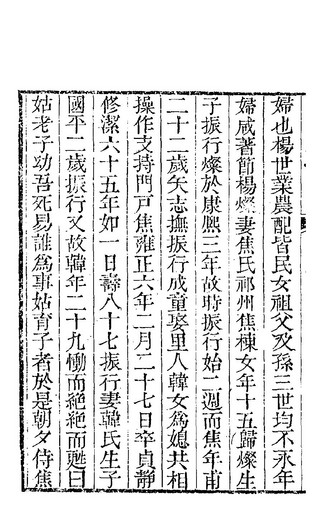 婦也楊世業農配皆民女祖父及孫三世均不永年
婦咸著節楊燦妻焦氏祁州焦棟女年十五歸燦生
子振行燦於康熙三年故時振行始二週而焦年甫
二十二歲矢志撫振行成童娶里人韓女為媳共相
操作支持門戸焦雍正六年二月二十七日卒貞靜
修潔六十五年如一日壽八十七振行妻韓氏生子
國平二歲振行又故韓年二十九慟而絶絶而甦曰
姑老子幼吾死易誰為事姑育子者於是朝夕侍焦